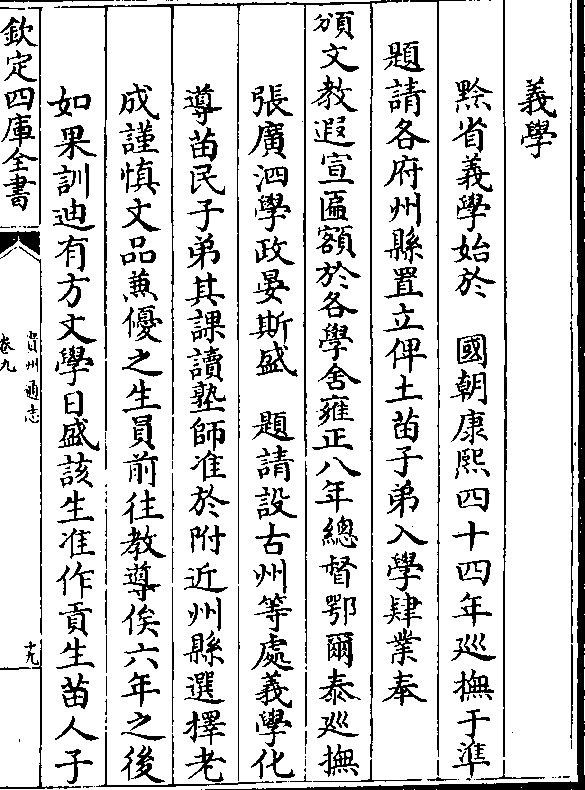 義學
黔省義學始於　國朝康熙四十四年巡撫于準
題請各府州縣置立俾土苗子弟入學肄業奉
頒文教遐宣匾額於各學舍雍正八年總督鄂爾泰巡撫
張廣泗學政晏斯盛　題請設古州等處義學化
導苗民子弟其課讀塾師准於附近州縣選擇老
成謹慎文品兼優之生員前往教導俟六年之後
如果訓迪有方文學日盛該生准作貢生苗人子
欽定四庫全書
貴州通志
卷九
十九